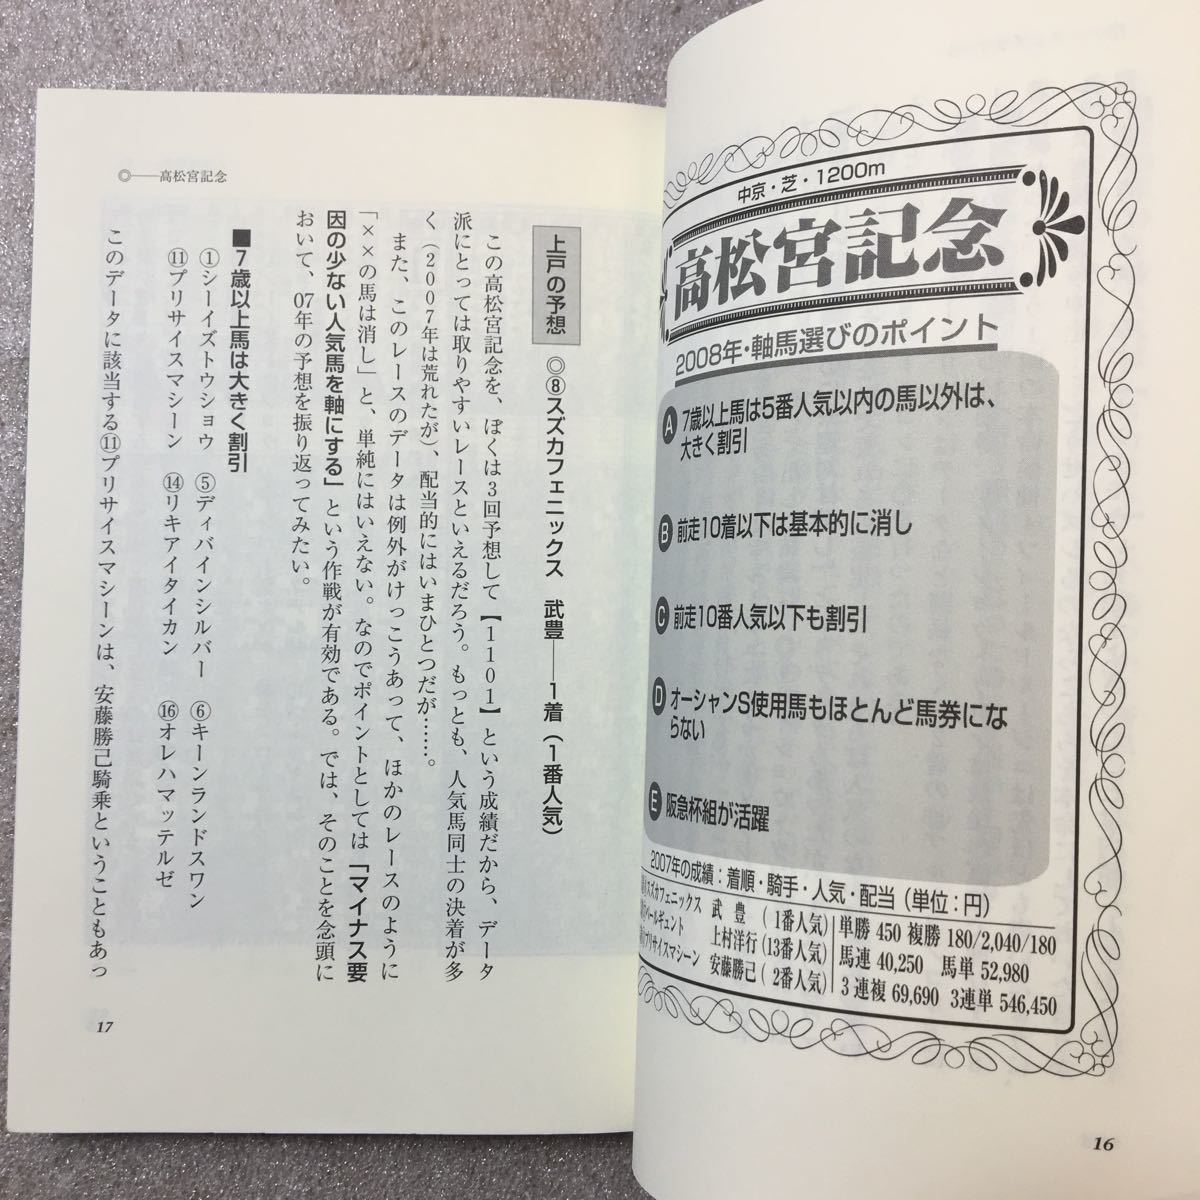 中京・芝・1200m
高松宮記念
2008年・軸馬選びのポイント
A 7歳以上馬は5番人気以内の馬以外は、
大きく割引
B 前走10着以下は基本的に消し
C 前走10番人気以下も割引
D オーシャンS使用馬もほとんど馬券にな
らない
E 阪急杯組が活躍
2007年の成績：着順・騎手・人気・配当（単位：円）
スズカフェニックス 武 豊（ 1番人気）
ールギュント 上村洋行（13番人気）
プリサイスマシーン 安藤勝己（ 2番人気）
単勝 450 複勝 180/2,040/180
馬連 40,250 馬単 52,980
3連複 69,690 3連単 546,450
16
◎──高松宮記念
上戸の予想 ◎⑧スズカフェニックス 武豊──1着（1番人気）
この高松宮記念を、ぼくは3回予想して【1101】という成績だから、データ
派にとっては取りやすいレースといえるだろう。もっとも、人気馬同士の決着が多
く（2007年は荒れたが）、配当的にはいまひとつだが……。
また、このレースのデータは例外がけっこうあって、ほかのレースのように
「××の馬は消し」と、単純にはいえない。なのでポイントとしては「マイナス要
因の少ない人気馬を軸にする」という作戦が有効である。では、そのことを念頭に
おいて、07年の予想を振り返ってみたい。
■7歳以上馬は大きく割引
①シーイズトウショウ ⑤ディバインシルバー ⑥キーンランドスワン
⑪プリサイスマシーン ⑭リキアイタイカン ⑯オレハマッテルゼ
このデータに該当する⑪プリサイスマシーンは、安藤勝己騎乗ということもあっ
17